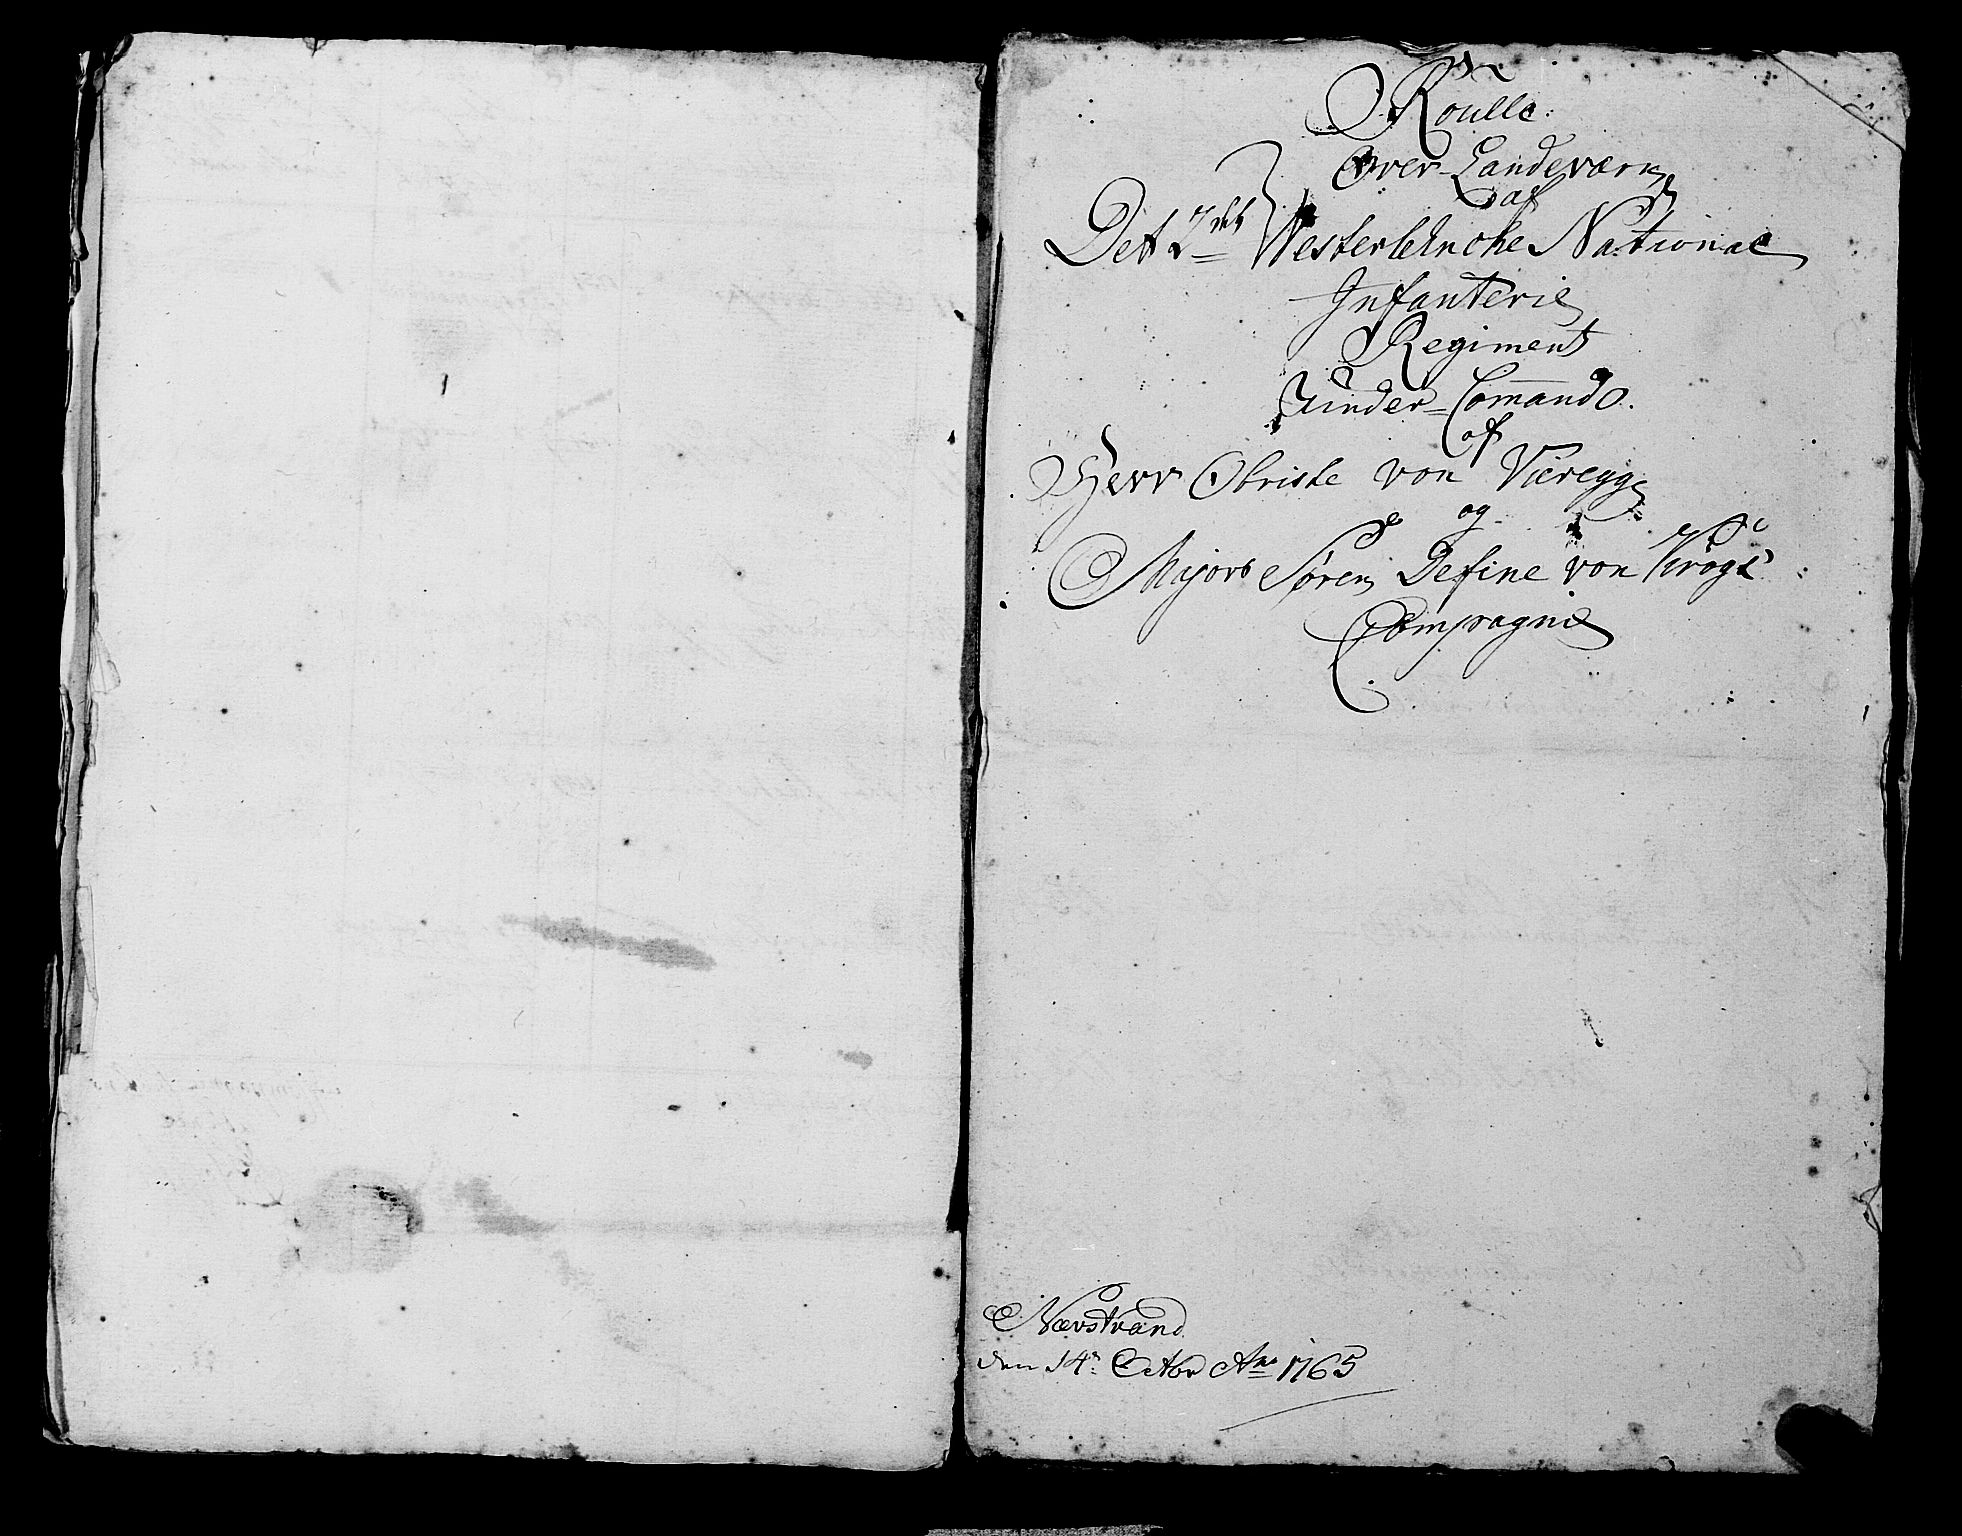 Roulle
Over Landeværn
af
Det 2det Westerlehnske National
Infanterie
Regiment
Under Comando.
af
Herr Obriste von Væregge
og
Majors Søren Define von Krogs
Compagnie
Nærstrand
den 14n Octobr Ano 1765